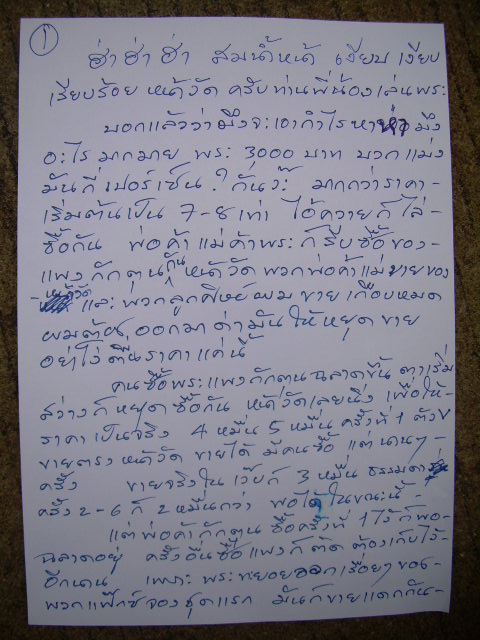 ①
ฮ่าฮ่าฮ่า สมน้ำหน้า เงียบ เงียบ
เรียบร้อย หน้าวัด ครับท่านพี่น้องเล่นพระ
บอกแล้วว่ามึงจะเอากำไรหา มึง
อะไร มากมาย พระ 3000 บาท บวกแม่ง
มันกี่เปอร์เซ็น.? กันวะ๊ มากกว่าราคา-
เริ่มต้นเป็น 7-8 เท่า ไอ้ควายก็ไล่-
ซื้อกัน พ่อค้าแม่ค้าพระก็รีบซื้อของ-
แพงกักตุนกันหน้าวัด พวกพ่อค้าแม่ขายของ
-หน้าวัด และพวกลูกศิษย์ผมขายเกือบหมด
ผมต้องออกมาด่ามันให้หยุดขาย
อย่าโง่ตื่นราคาแค่นี้
คนซื้อพระแพงกักตุนฉลาดขึ้น ตาเริ่ม
สว่างก็หยุดซื้อกัน หน้าวัดเลยนิ่ง เพื่อให้-
ราคาเป็นจริง 4 หมื่น 5 หมื่น ครั้งที่ 1 ตัง
ขายตรงหน้าวัด ขายได้ มีคนซื้อ แต่นานๆ-
ครั้ง ขายจริงในเว็บก็ 3 หมื่น ธรรมดา
ครั้ง 2-6 ก็ 2 หมื่นกว่า พอได้ในขณะนี้-
แต่พ่อค้ากักตุน ซื้อครั้งที่ 1 ไว้ก็พอ-
ฉลาดอยู่ ครั้งอื่นซื้อแพงก็ติด ต้องเก็บไว้-
อีกนาน เพราะ พระทยอยออกเรื่อยๆ ของ-
พวกแฟ๊กซ์จองชุดแรก มันก็ขายแดกกัน-